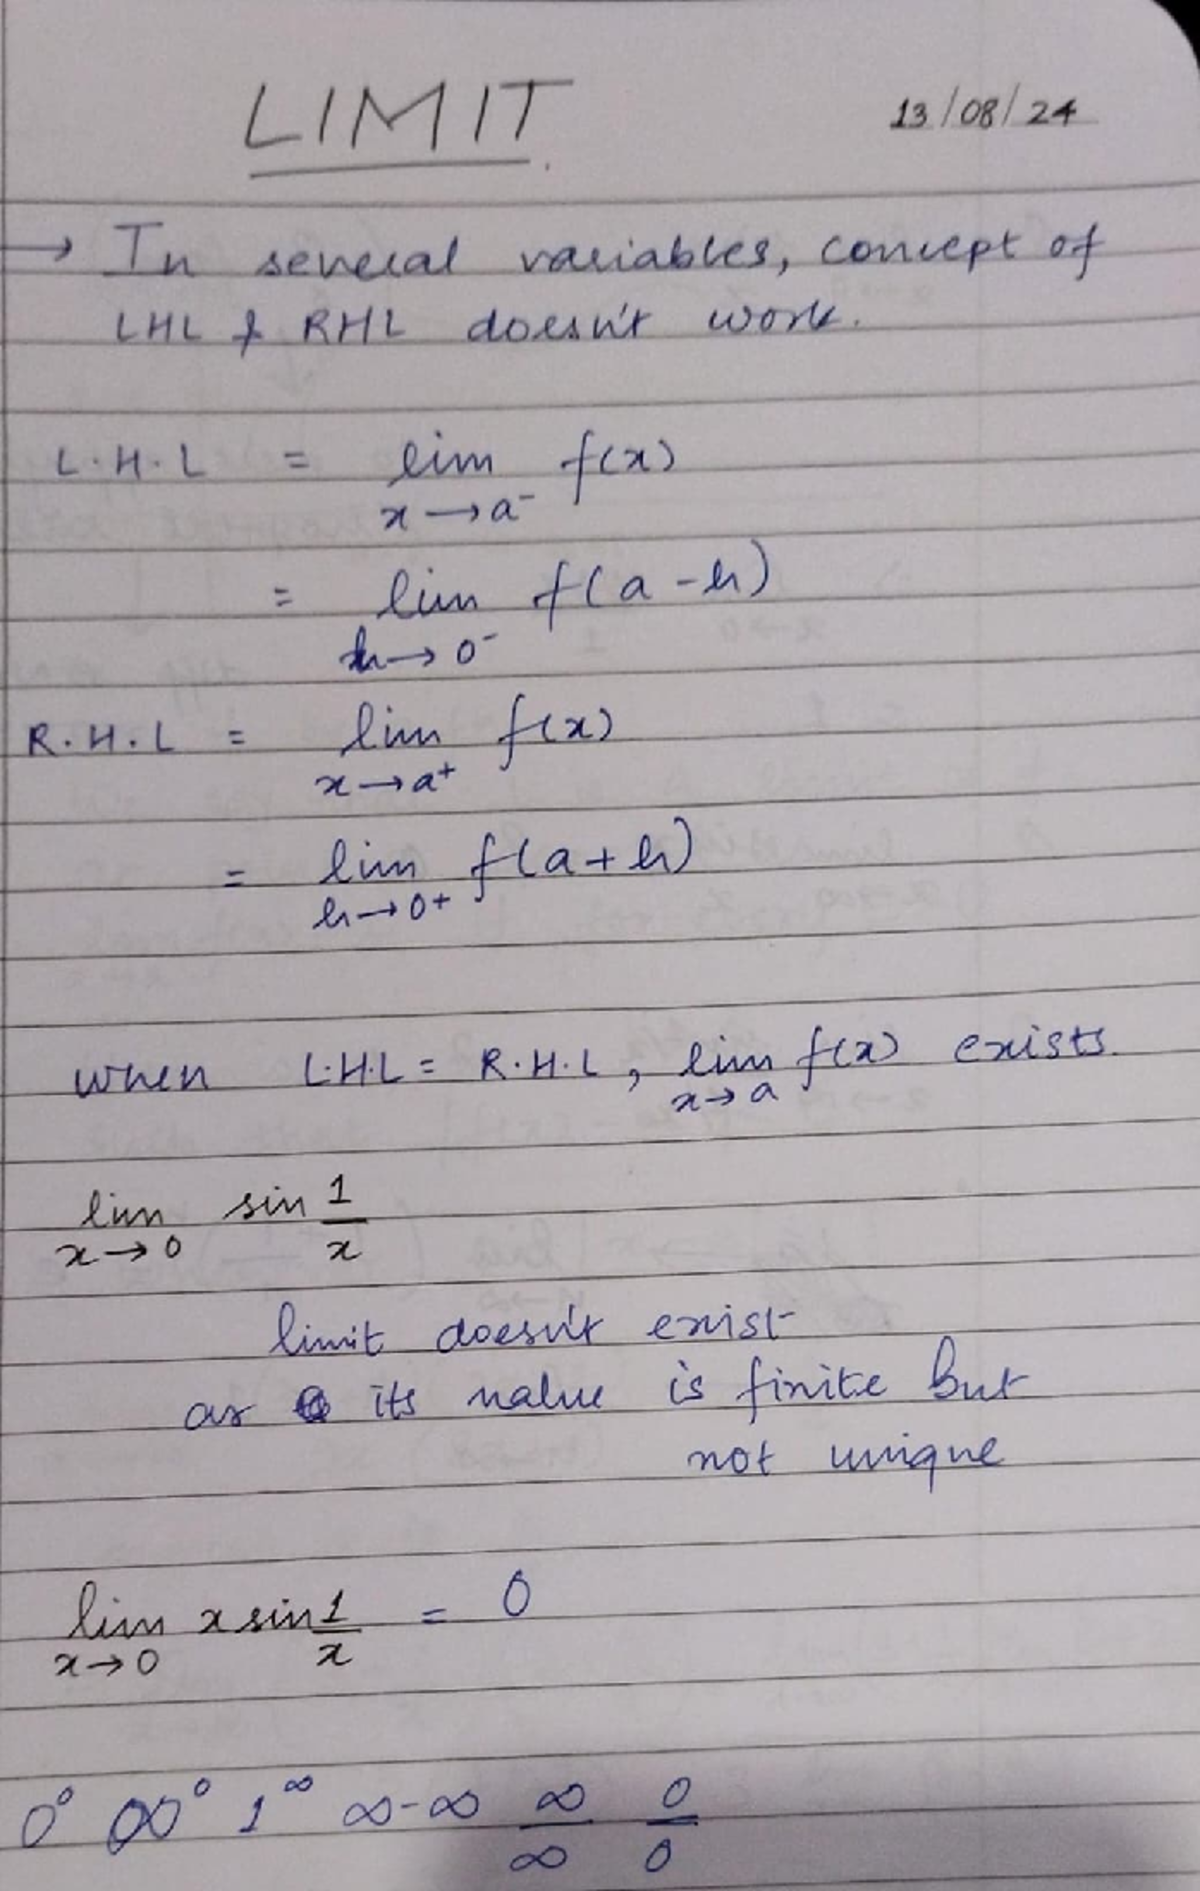 LIMIT
13/08/24
→ In several variables, concept of
LHL & RHL doesn't work.
L.H.L = lim f(x)
x→a⁻
= lim f(a-h)
h→0⁻
R.H.L = lim f(x)
x→a⁺
= lim f(a+h)
h→0+
when L.H.L = R.H.L, lim f(x) exists.
x→a
lim sin 1/x
x→0
limit doesn't exist
as its value is finite but
not unique
lim x sin 1/x = 0
x→0
0⁰ ∞⁰ 1^∞ ∞-∞ ∞/∞ 0/0